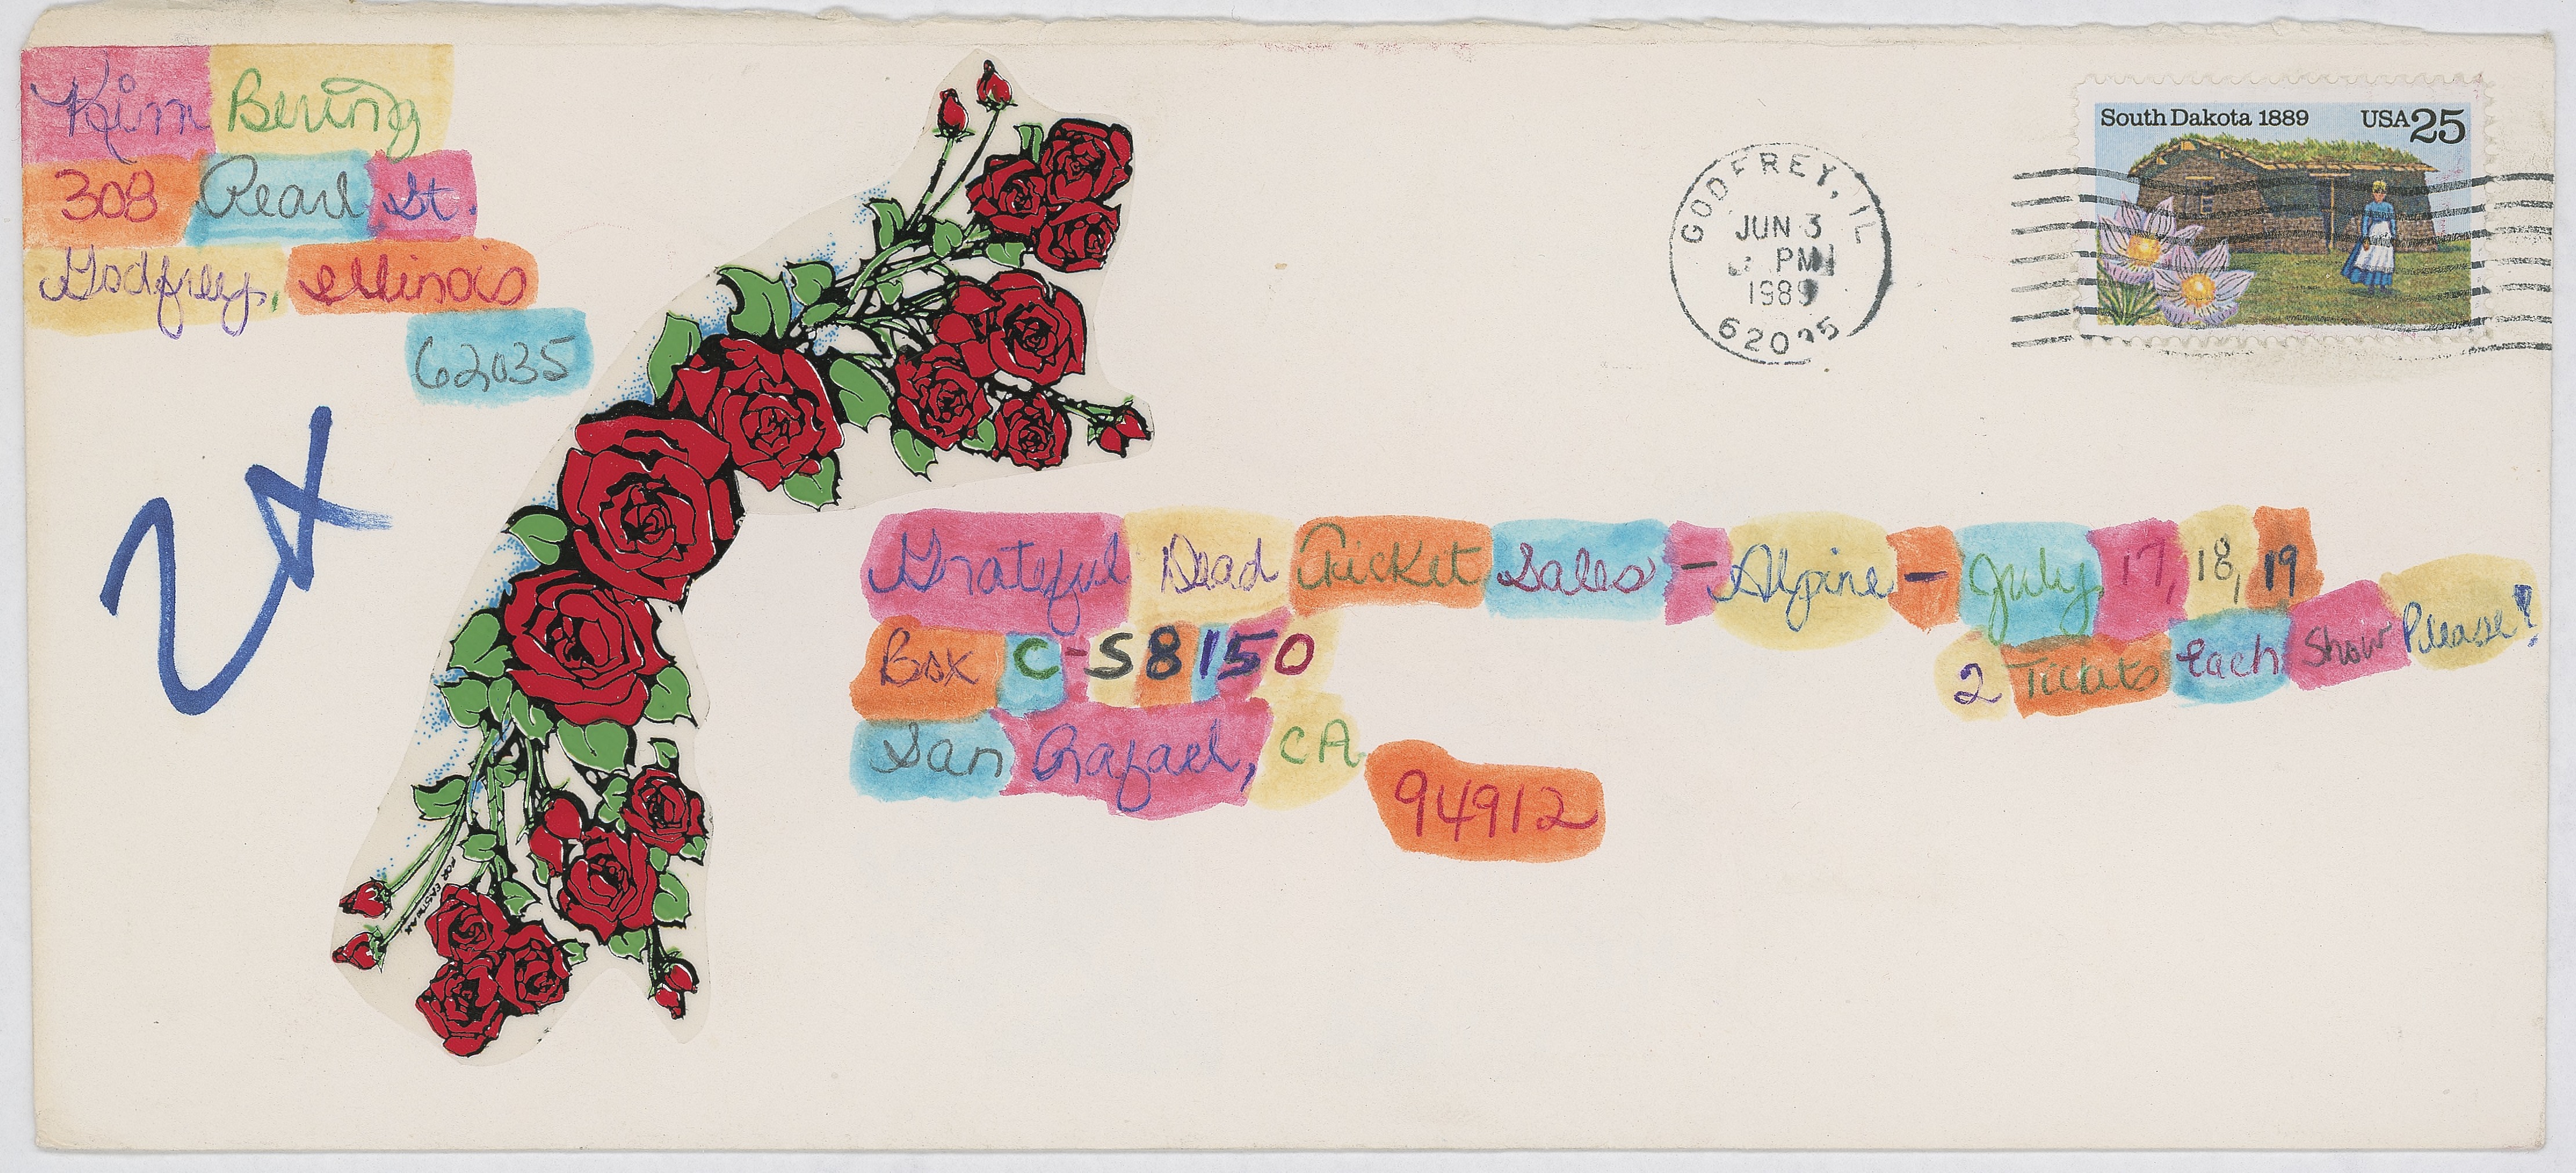 Kim Bering
308 Pearl St.
Godfrey, Illinois
62035
2x
South Dakota 1889 USA 25
GODFREY, IL
JUN 3
PM
1989
62035
Grateful Dead Ticket Sales - Alpine - July 17, 18, 19
2 Tickets each Show Please!
Box C-S8150
San Rafael, CA
94912